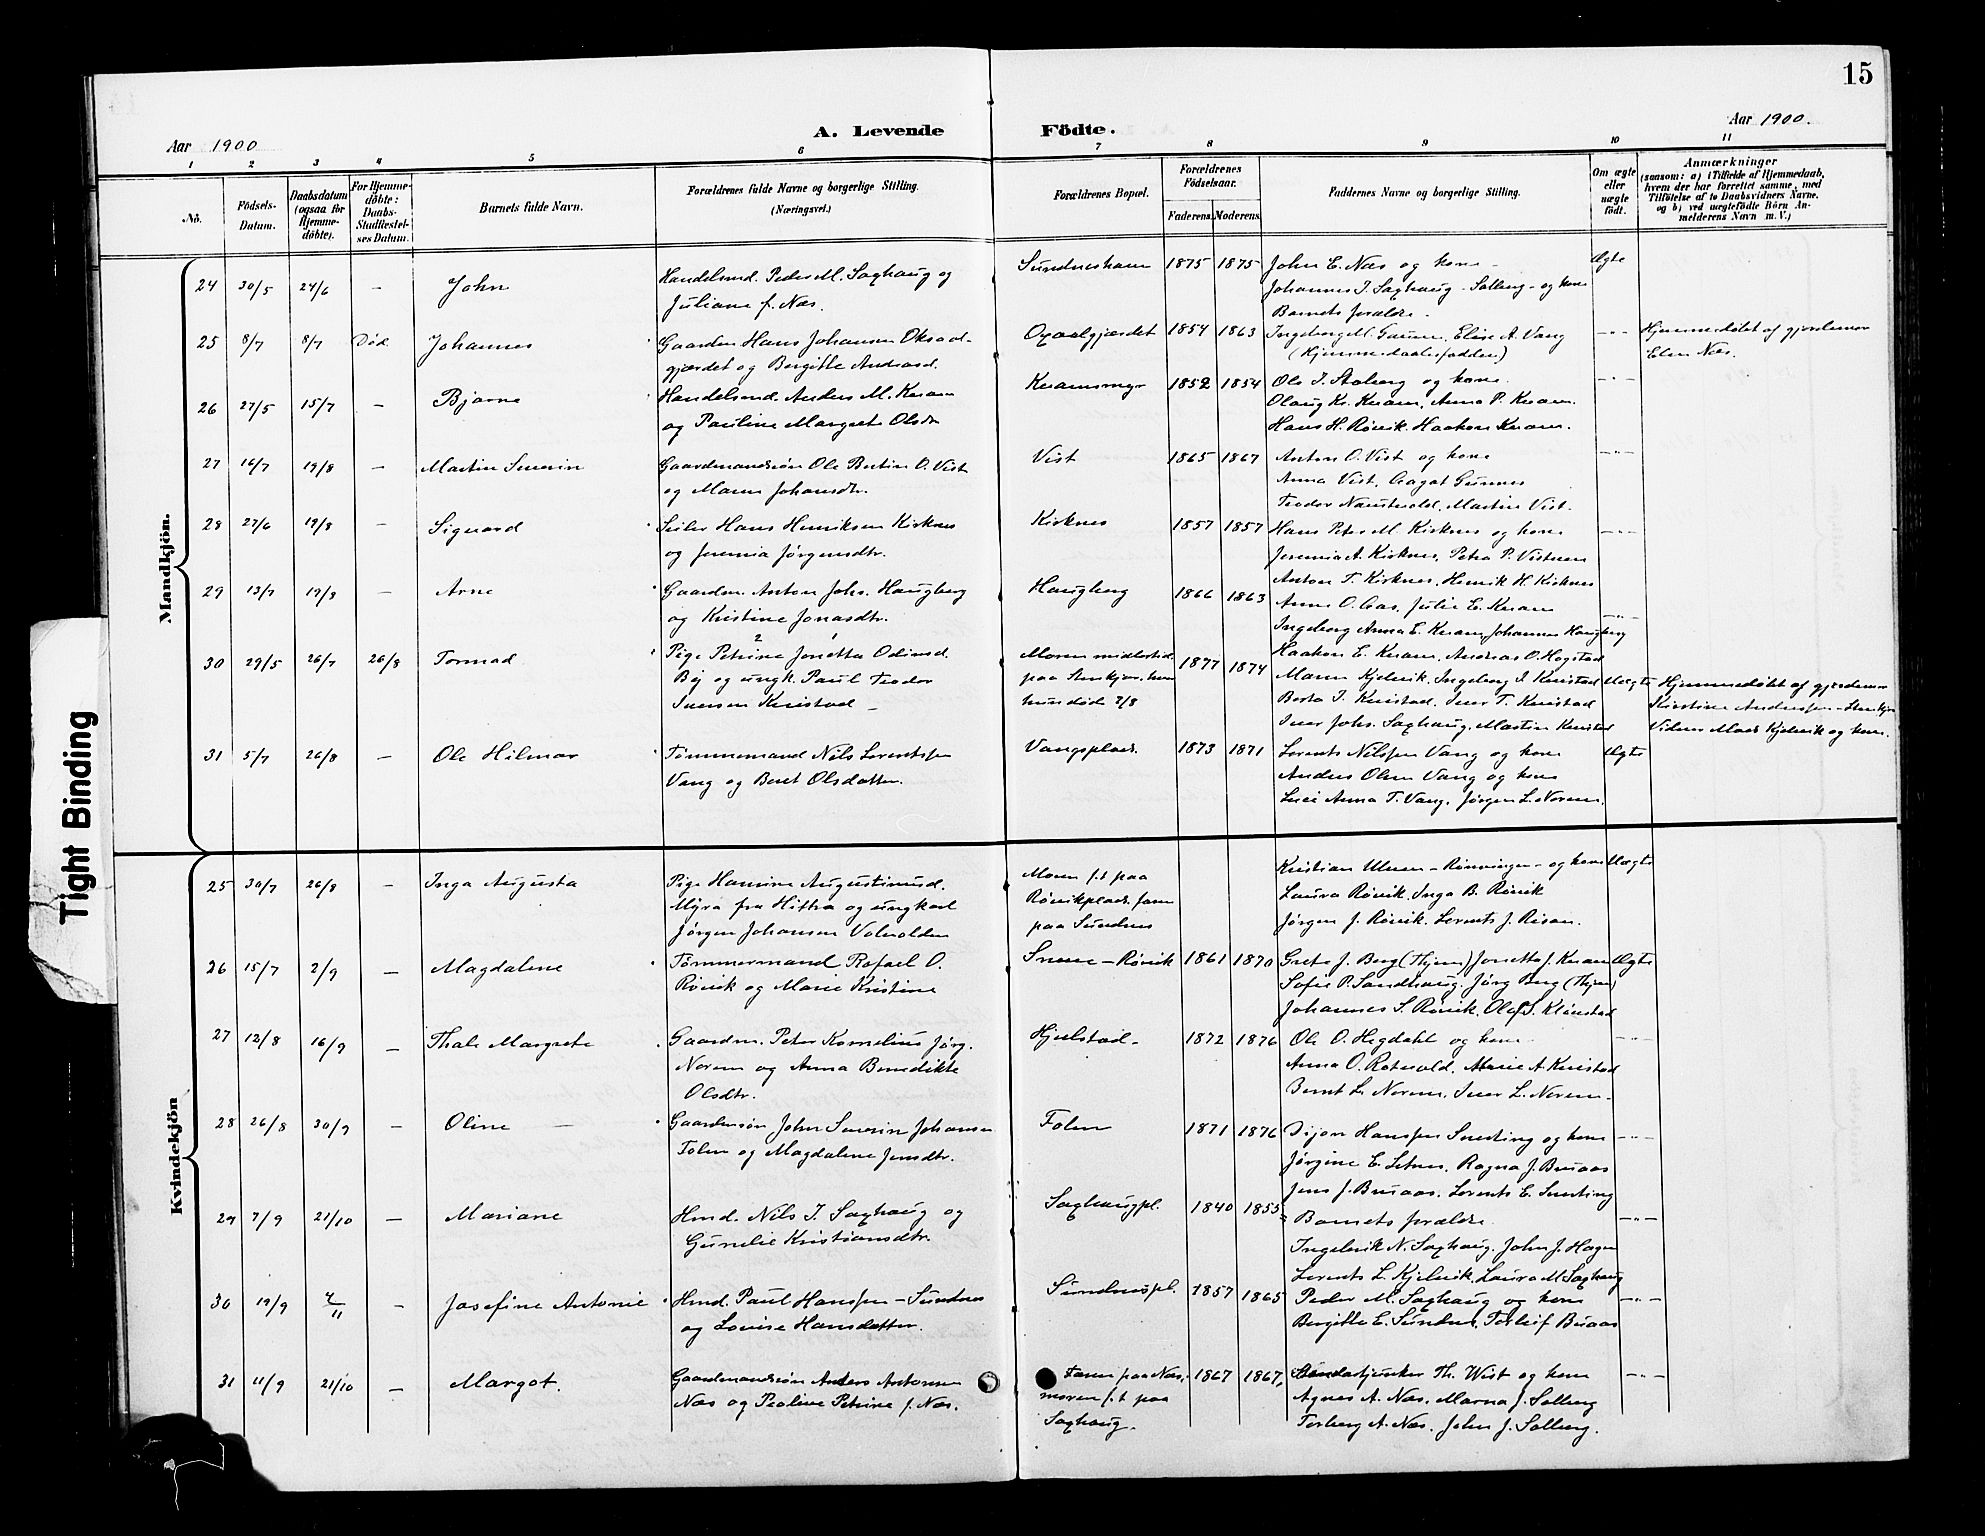 15
Aar 1900
A. Levende Födte.
Aar 1900.
1 2 3 4 5 6 7 8 9 10 11
No.
Födsels-Datum.
Daabsdatum (ogsaa for Hjemme-döbte).
For Hjemme-döbte: Daabs-Stadfæstel-ses Datum.
Barnets fulde Navn.
Forældrenes fulde Navne og borgerlige Stilling. (Næringsvei.)
Forældrenes Bopæl.
Forældrenes Födselsaar.
Faderens. Moderens.
Faddernes Navne og borgerlige Stilling.
Om ægte eller uægte födt.
Anmærkninger
(saasom: a) i Tilfælde af Hjemmedaab, hvem der har forrettet samme, med Tilföielse af to Daabsvidners Navne, og b) ved uægtefödte Börn An-melderens Navn m. V.)
Mandkjön.
24 30/5 24/6 - John
Handelsmd. Peder M. Saxhaug og
Juliane f. Næs.
Sundneshavn 1875 1875
John E. Næs og kone -
Johannes I. Saxhaug - Solberg - og kone
Barnets forældre -
Ægte
25 8/7 8/7 Død Johannes
Gaardm Hans Johansen Oksaal-
gjærdet og Bergitte Andreasd.
Oxaalgjærdet 1854 1863
Ingeborg M. , Elise A. Vang
(Hjemmedaabsfaddere)
-"-
Hjemmedøbt af gjordemor
Elen Næs.
26 27/5 15/7 - Bjarne
Handelsmd. Anders M. Kvam
og Pauline Margrete Olsdr
Kvamsmyr 1852 1854
Ole I. Stoberg og kone
Olaug Kr. Kvam, Anna P. Kvam.
Hans H. Røvik. Haakon Kvam.
-"-
27 16/7 19/8 - Martin Severin
Gaardmandssøn Ole Bertin O. Vist
og Maren Johansdtr.
Vist 1865 1867
Anton O. Vist og kone
Anna Vist, Aagot Gunnes
Teodor Naustvold, Martin Vist.
-"-
28 27/6 19/8 - Sigvard
Seiler Hans Henriksen Kirknes
og Jeremia Jørgensdtr.
Kirknes 1857 1857
Hans Peter M. Kirknes og kone
Jeremia A. Kirknes, Petra P. Vistnes
Anton T. Kirknes, Henrik H. Kirknes
-"-
29 13/7 19/8 - Arne
Gaardm. Anton Johs. Haugberg
og Kristine Jonasdtr.
Haugberg 1866 1863
Anne O. Aas, Julie E. Kvam
Ingeborg Anna E. Kvam, Johannes Haugberg
-"-
30 29/5 26/7 26/8 Tormod
Pige Petrine Jonetta Odinsd.
By og ungk. Paul Teodor
Iversen Kvistad -
Moren midlertid.
paa Stenkjær, hvor
hun døde 2/8
1877 1874
Haakon E. Kvam, Andreas O. Hogstad
Maren Kjelvik, Ingeborg I. Kvistad
Berta I. Kvistad, Iver T. Kvistad
Iver Johs. Saxhaug, Martin Kvistad
Uægte
Hjemmedøbt af gjordemor
Kirstine Anderssen - Stenkjær
Vidner Mads Kjelvik og kone.
31 5/7 26/8 - Ole Hilmar
Tømmermand Nils Lorentssen
Vang og Beret Olsdatter.
Vangsplads. 1873 1871
Lorents Nilssen Vang og kone
Anders Olsen Vang og kone
Anna T. Vang, Jørgen L. Norem.
Ægte
Kvindekjön
25 30/7 26/8 - Inga Augusta
Pige Hansine Augustinusd.
Myra fra Hittra og ungkarl
Jørgen Johansen Volvolden
Moren f.t paa
Røvikplads. faren
paa Sundnes
Kristian Ulven - Rønningen - og kone
Laura Røvik, Inga B. Røvik
Jørgen J. Røvik. Lorents J. Risan.
Uægte
26 15/7 2/9 - Magdalene
Tømmermand Rafael O.
Røvik og Marie Kristine
- Røvik 1861 1870
Grete J. Berg (Hjem) Jonetta J. Kvam
Sofie P. Sandhaug. Jørg Berg (Hjem)
Johannes S. Røvik, Olaf S. Klønstad
Ægte
27 12/8 16/9 - Thale Margrete
Gaardm. Peter Kornelius Jørg.
Norem og Anna Benedikte
Olsdtr.
Hjelstad - 1872 1876
Ole O. Hegdahl og kone
Anna O. Rotvold, Marie A Kvistad
Bernt L. Norem, Iver L. Norem -
-"-
28 26/8 30/9 - Oline
Gaardmsøn John Severin Johansen
Folen og Magdalene Jensdtr.
Folen 1871 1876
Hanssen Snerting og kone
Jørgine E. Letnes, Ragna J. Buaas
Jens J. Buaas. Lorents E. Snerting
-"-
29 7/9 21/10 - Mariane
Hmd. Nils I. Saxhaug og
Gunelie Kristiansdtr.
Saxhaugpl. 1840 1855
Barnets forældre.
Ingebrik N. Saxhaug. John J. Hagen
Lorents L. Kjelvik, Laura M. Saxhaug
-"-
30 19/9 4/11 - Josefine Antonie
Hmd. Paul Hanssen - Sundnes
og Lovise Hansdatter.
Sundnespl. 1857 1865
Peder M. Saxhaug og kone
Bergitte E. Sundnes, Torleif Buaas
-"-
31 11/9 21/10 - Margot.
Gaardmandssøn Anders Antonsen
Næs og Pauline Petrine f. Næs.
Faren paa Næs,
moren f.t paa
Saxhaug.
1867 1867,
Th. Wist og kone
Agnes A. Næs. Marna J. Solberg
Torberg A. Næs. John J. Solberg.
-"-
Tight Binding